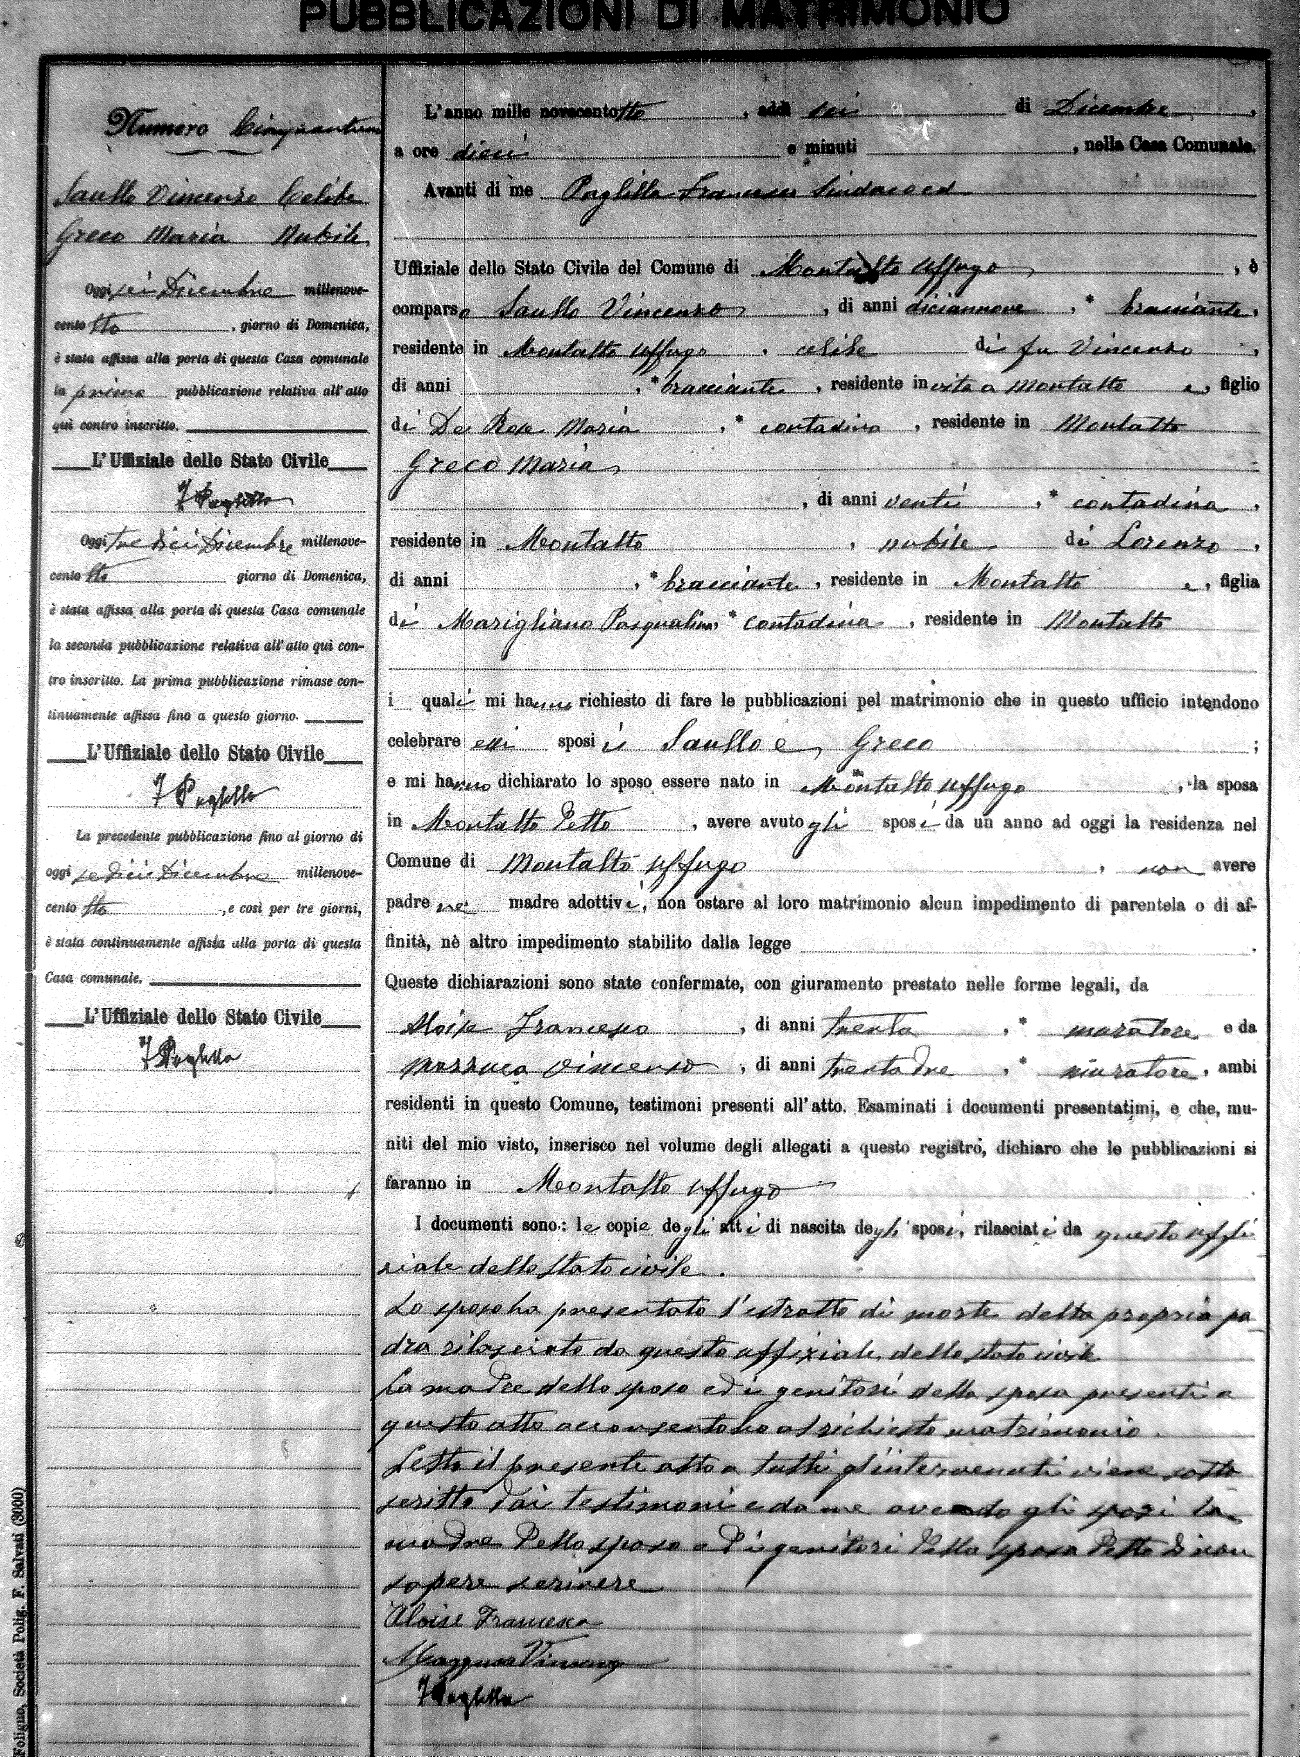 PUBBLICAZIONI DI MATRIMONIO
Numero Cinquantun
Saullo Vincenzo Celibe
Greco Maria Nubile
Oggi sei Dicembre millenove-
cento otto, giorno di Domenica,
è stata affissa alla porta di questa Casa comunale
la prima pubblicazione relativa all'atto
quì contro inscritto.
L'Uffiziale dello Stato Civile
F Paglilla
Oggi tredici Dicembre millenove-
cento otto giorno di Domenica,
è stata affissa alla porta di questa Casa comunale
la seconda pubblicazione relativa all'atto quì con-
tro inscritto. La prima pubblicazione rimase con-
tinuamente affissa fino a questo giorno.
L'Uffiziale dello Stato Civile
F Paglilla
La precedente pubblicazione fino al giorno di
oggi sedici Dicembre millenove-
cento otto, e così per tre giorni,
è stata continuamente affissa alla porta di questa
Casa comunale.
L'Uffiziale dello Stato Civile
F Paglilla
L'anno mille novecentotto, addì sei di Dicembre,
a ore dieci e minuti , nella Casa Comunale.
Avanti di me Paglilla Francesco Sindaco ed
Uffiziale dello Stato Civile del Comune di Montalto Uffugo, è
comparso Saullo Vincenzo, di anni diciannove, * bracciante,
residente in Montalto Uffugo, celibe di fu Vincenzo,
di anni , * bracciante, residente in vita a Montalto e, figlio
di De Rose Maria, * contadina, residente in Montalto
Greco Maria,
, di anni venti, * contadina,
residente in Montalto, nubile di Lorenzo,
di anni , * bracciante, residente in Montalto e, figlia
di Marigliano Pasqualina, * contadina, residente in Montalto
i quali mi hanno richiesto di fare le pubblicazioni pel matrimonio che in questo ufficio intendono
celebrare essi sposi Saullo e Greco ;
e mi hanno dichiarato lo sposo essere nato in Montalto Uffugo, la sposa
in Montalto Detto, avere avuto gli sposi da un anno ad oggi la residenza nel
Comune di Montalto Uffugo, non avere
padre nè madre adottivi, non ostare al loro matrimonio alcun impedimento di parentela o di af-
finità, nè altro impedimento stabilito dalla legge .
Queste dichiarazioni sono state confermate, con giuramento prestato nelle forme legali, da
Aloise Francesco, di anni trenta, * muratore e da
Mazzuca Vincenzo, di anni trentadue, * muratore, ambi
residenti in questo Comune, testimoni presenti all'atto. Esaminati i documenti presentatimi, e che, mu-
niti del mio visto, inserisco nel volume degli allegati a questo registro, dichiaro che le pubblicazioni si
faranno in Montalto Uffugo
I documenti sono: le copie degli atti di nascita degli sposi, rilasciati da questo uffi
ziale dello stato civile.
Lo sposo ha presentato l'estratto di morte della propria pa-
dra rilasciato da questo uffiziale dello stato civile
La madre dello sposo ed i genitori della sposa presenti a
questo atto acconsentono al richiesto matrimonio.
Letto il presente atto a tutti gl'intervenuti viene sotto
scritto dai testimoni e da me avendo gli sposi la
madre dello sposo e di genitori della sposa detto di non
sapere scrivere
Aloise Francesco
Mazzuca Vincenzo
F Paglilla
Foligno, Società Polig. F. Salvati (3000)